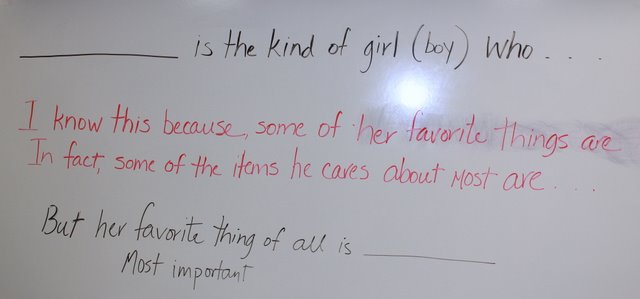 __________ is the kind of girl (boy) who . . . .
I know this because, some of her favorite things are
In fact, some of the items he cares about most are . . .
But her favorite thing of all is __________
Most important